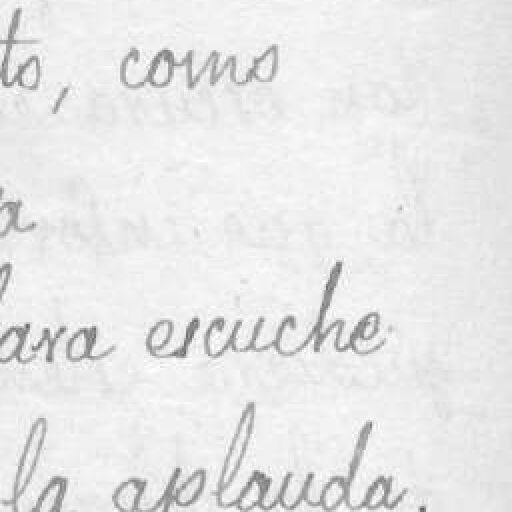 to, como
a
lara escuche
la aplauda.